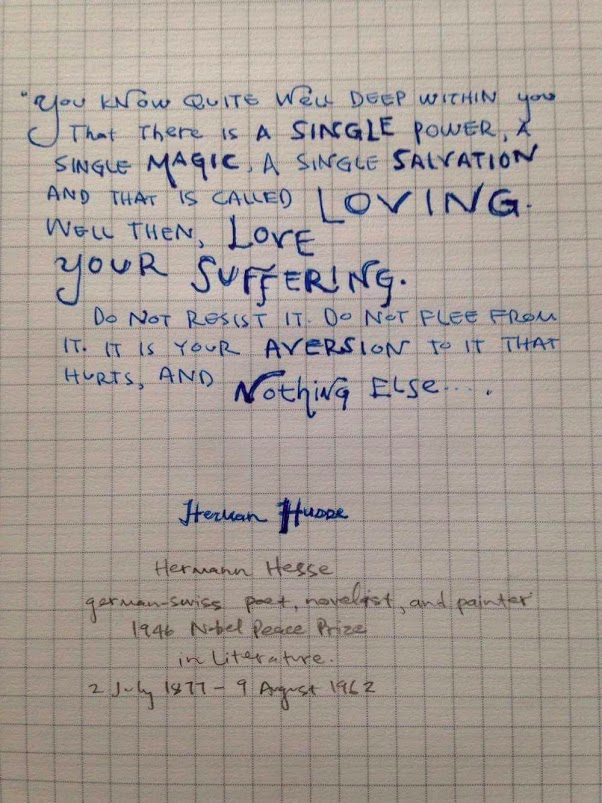 "You KNOW QUITE Well DEEP WITHIN you
That There IS A SINGLE POWER, A
SINGLE MAGIC, A SINGLE SALVATION
AND THAT IS CALLED LOVING.
WELL THEN, LOVE
YOUR SUFFERING.
DO NOT RESIST IT. DO NOT FLEE FROM
IT. IT IS YOUR AVERSION TO IT THAT
HURTS, AND Nothing ELSE.....
Herman
Hermann Hesse
german-swiss poet, novelist, and painter
1946 Nobel Peace Prize
in Literature.
2 July 1877 - 9 August 1962